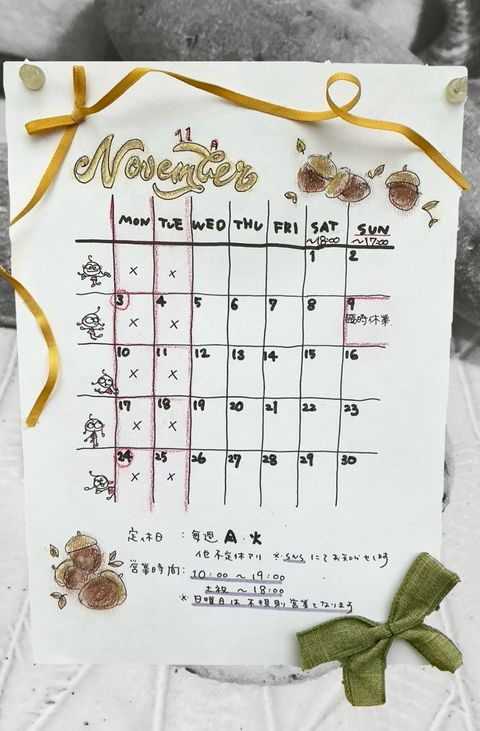 11月
November
MON TUE WED THU FRI SAT SUN
~18:00 ~17:00
× × 1 2
3 4 5 6 7 8 9
× × 臨時休業
10 11 12 13 14 15 16
× ×
17 18 19 20 21 22 23
× ×
24 25 26 27 28 29 30
× ×
定休日 : 毎週 月・火
他 不定休アリ ※SNSにてお知らせします
営業時間: 10:00 〜 19:00
土祝 〜 18:00
※ 日曜日は不規則営業となります